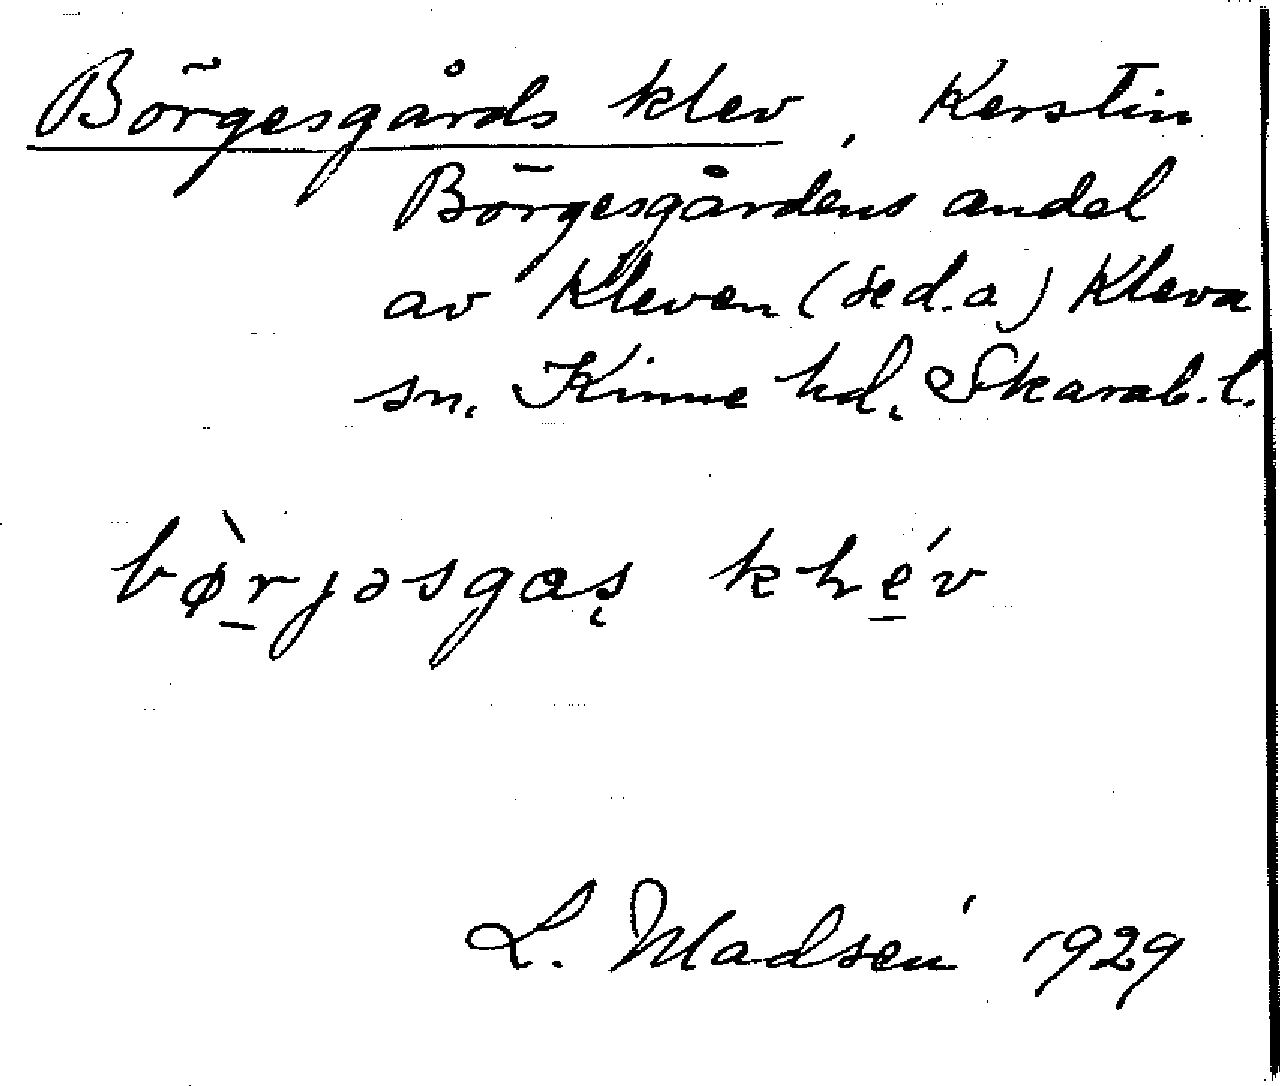 Börgesgårds klev, Kerstin
Börgesgårdens andel
av Kleven (se d.o) Kleva
sn. Kinne hd. Skarab. l.
bø̀rjəsgas̨ khé̱v
L. Madsén 1929